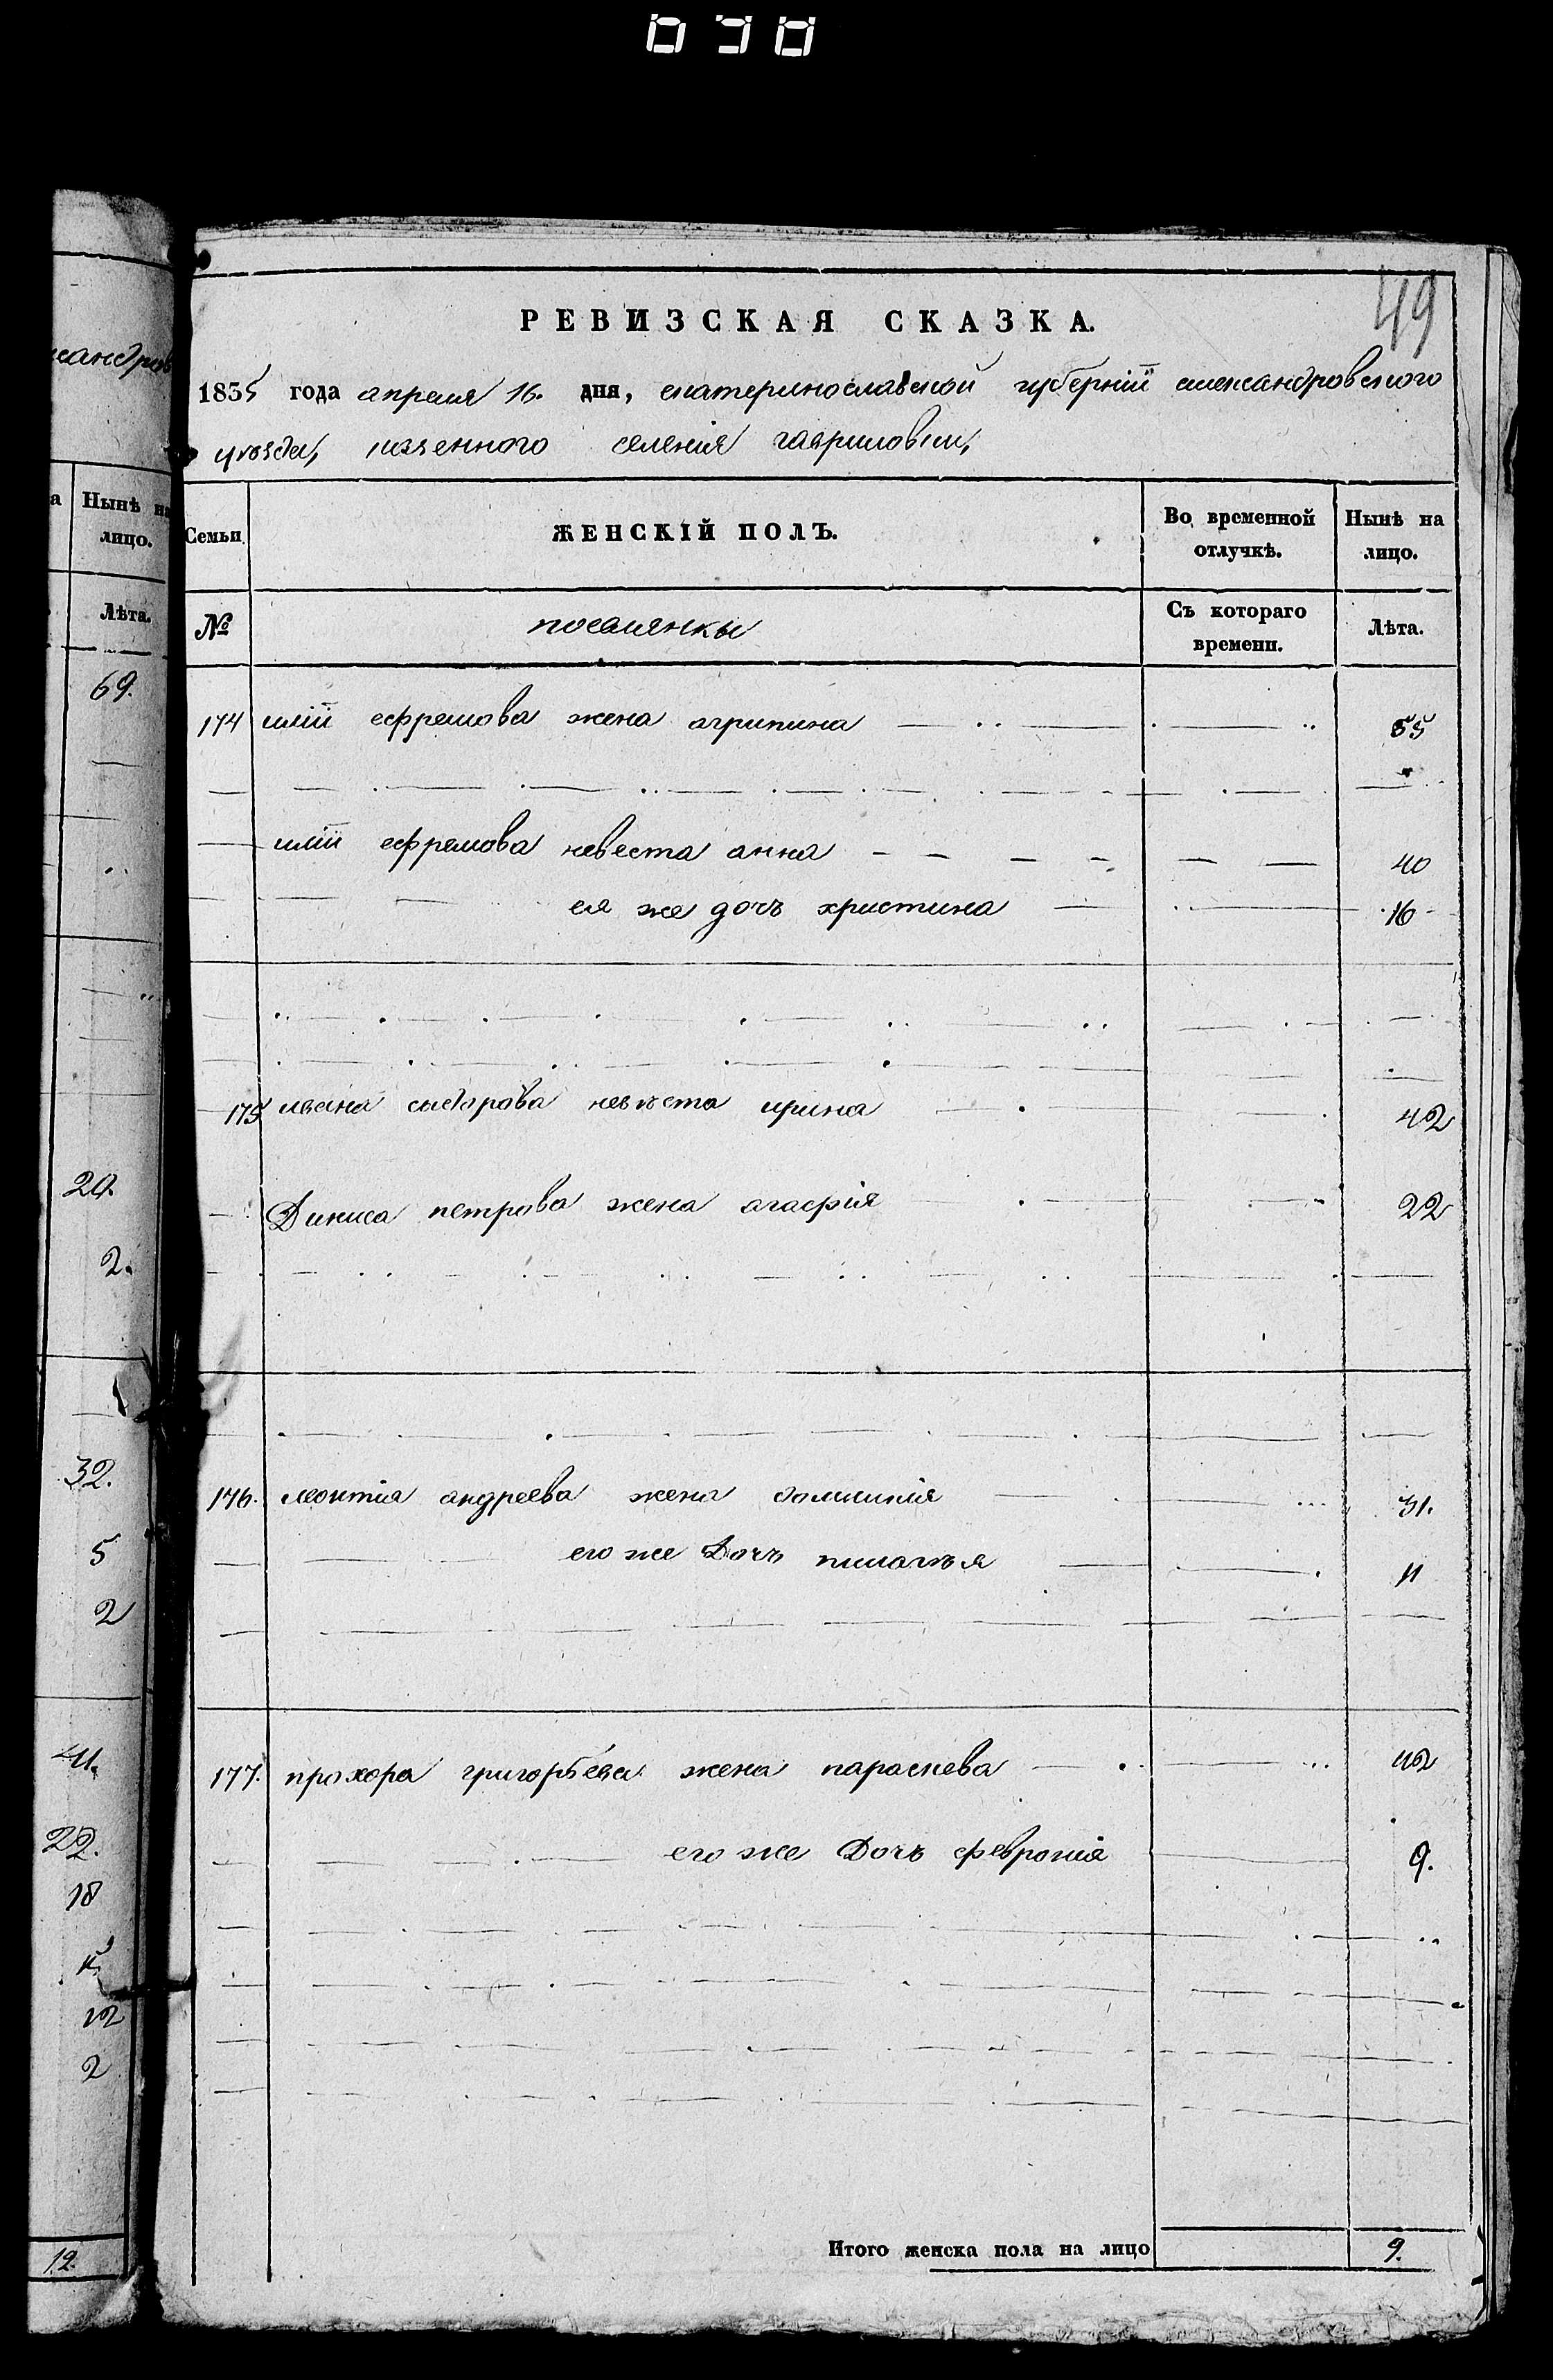 030
49
РЕВИЗСКАЯ СКАЗКА.
1835 года апреля 16. дня, екатеринославской губернiи александровского
уезда, казенного селенiя гавриловки,
Семьи
ЖЕНСКIЙ ПОЛЪ.
Во временной отлучкѣ.
Нынѣ на лицо.
№
поселянки
Съ котораго времени.
Лѣта.
174 илiи ефремова жена агрипина 55
илiи ефремова невеста анна 40
ея же дочь христина 16
175 ивана сыдорова невѣста ирина 42
Диниса петрова жена агафiя 22
176. леонтiя андреева жена домникiя 31.
его же Дочь пилагѣя 11
177. прохора григорьева жена параскева 42
его же Дочь февронiя 9.
Итого женска пола на лицо 9.
жандров
а
Нынѣ на
лицо.
Лѣта.
69.
20.
2.
32.
5
2
41.
22.
18
12
2
12.